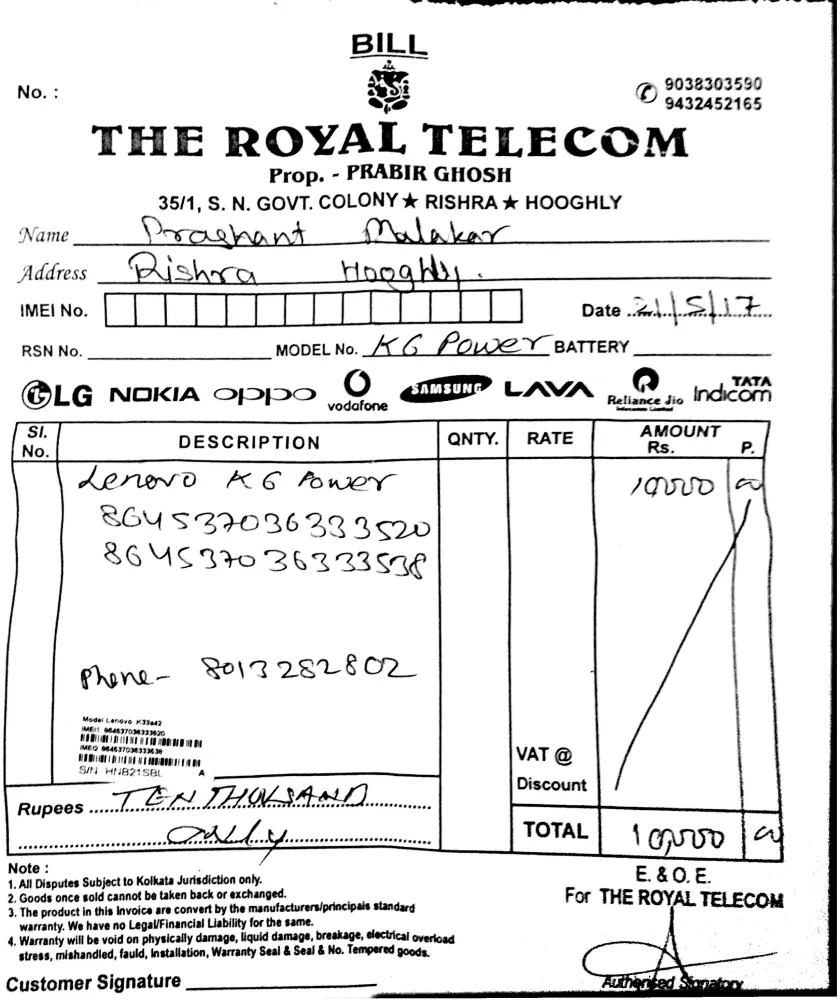 BILL
No. :
9038303590
9432452165
THE ROYAL TELECOM
Prop. - PRABIR GHOSH
35/1, S. N. GOVT. COLONY ★ RISHRA ★ HOOGHLY
Name Prashant Malakar
Address Rishra Hooghly.
IMEI No. Date 21/5/17
RSN No. MODEL No. K6 Power BATTERY
LG NOKIA oppo vodafone SAMSUNG LAVA Reliance Jio TATA Indicom
Sl. No. DESCRIPTION QNTY. RATE AMOUNT Rs. P.
Lenovo K6 Power 10,000 00
864537036333520
864537036333538
Phone- 8013282802
Model Lenovo K33a42
IMEI1
IMEI2
S/N HNB21SBL A
VAT @
Discount
Rupees TEN THOUSAND
Only
TOTAL 10,000 00
Note :
1. All Disputes Subject to Kolkata Jurisdiction only.
2. Goods once sold cannot be taken back or exchanged.
3. The product in this Invoice are convert by the manufacturers/principals standard
warranty. We have no Legal/Financial Liability for the same.
4. Warranty will be void on physically damage, liquid damage, breakage, electrical overload
stress, mishandled, fauld, Installation, Warranty Seal & Seal & No. Tempered goods.
E. & O. E.
For THE ROYAL TELECOM
Customer Signature
Authorised Signatory